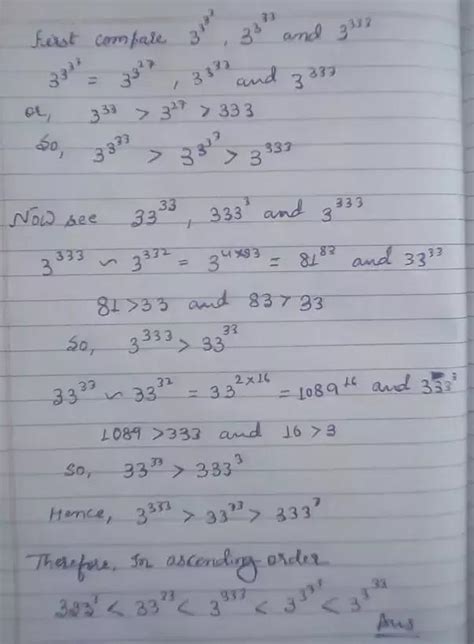 First compare 3^3^3^3, 3^3^33 and 3^333
3^3^3^3 = 3^3^27, 3^3^33 and 3^333
or, 3^33 > 3^27 > 333
So, 3^3^33 > 3^3^3^3 > 3^333
Now see 33^33, 333^3 and 3^333
3^333 ~ 3^332 = 3^4×83 = 81^83 and 33^33
81 > 33 and 83 > 33
So, 3^333 > 33^33
33^33 ~ 33^32 = 33^2×16 = 1089^16 and 333^3
1089 > 333 and 16 > 3
So, 33^33 > 333^3
Hence, 3^333 > 33^33 > 333^3
Therefore, In ascending order
333^3 < 33^33 < 3^333 < 3^3^3^3 < 3^3^33
Ans